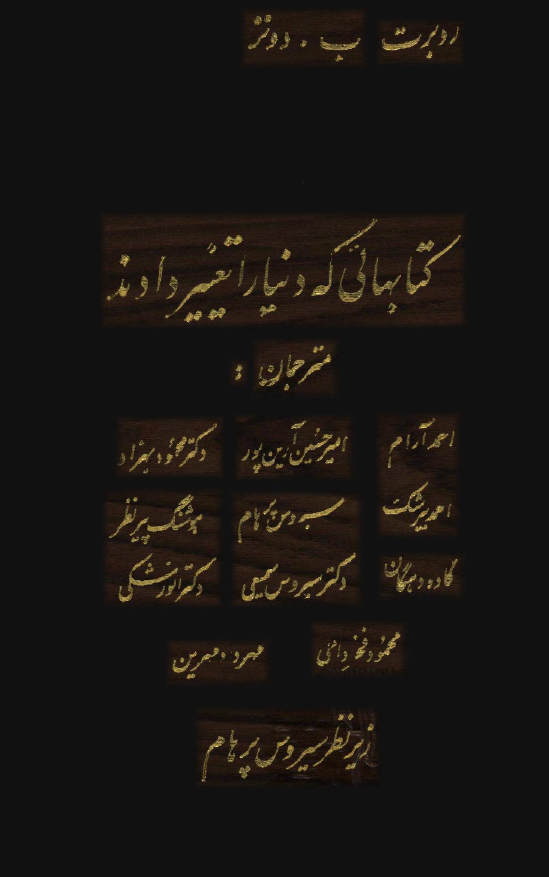 روبرت ب . دونز
کتابهائی که دنیا را تغییر دادند.
مترجمان :
احمد آرام امیرحسین آرین پور دکتر محمود بهزاد
احمد بیرشک سیروس پرهام هوشنگ پیرنظر
کاوه دهگان دکتر سیروس سمیعی دکتر انور شکی
محمود فخر داعی مهرداد مهرین
زیر نظر سیروس پرهام